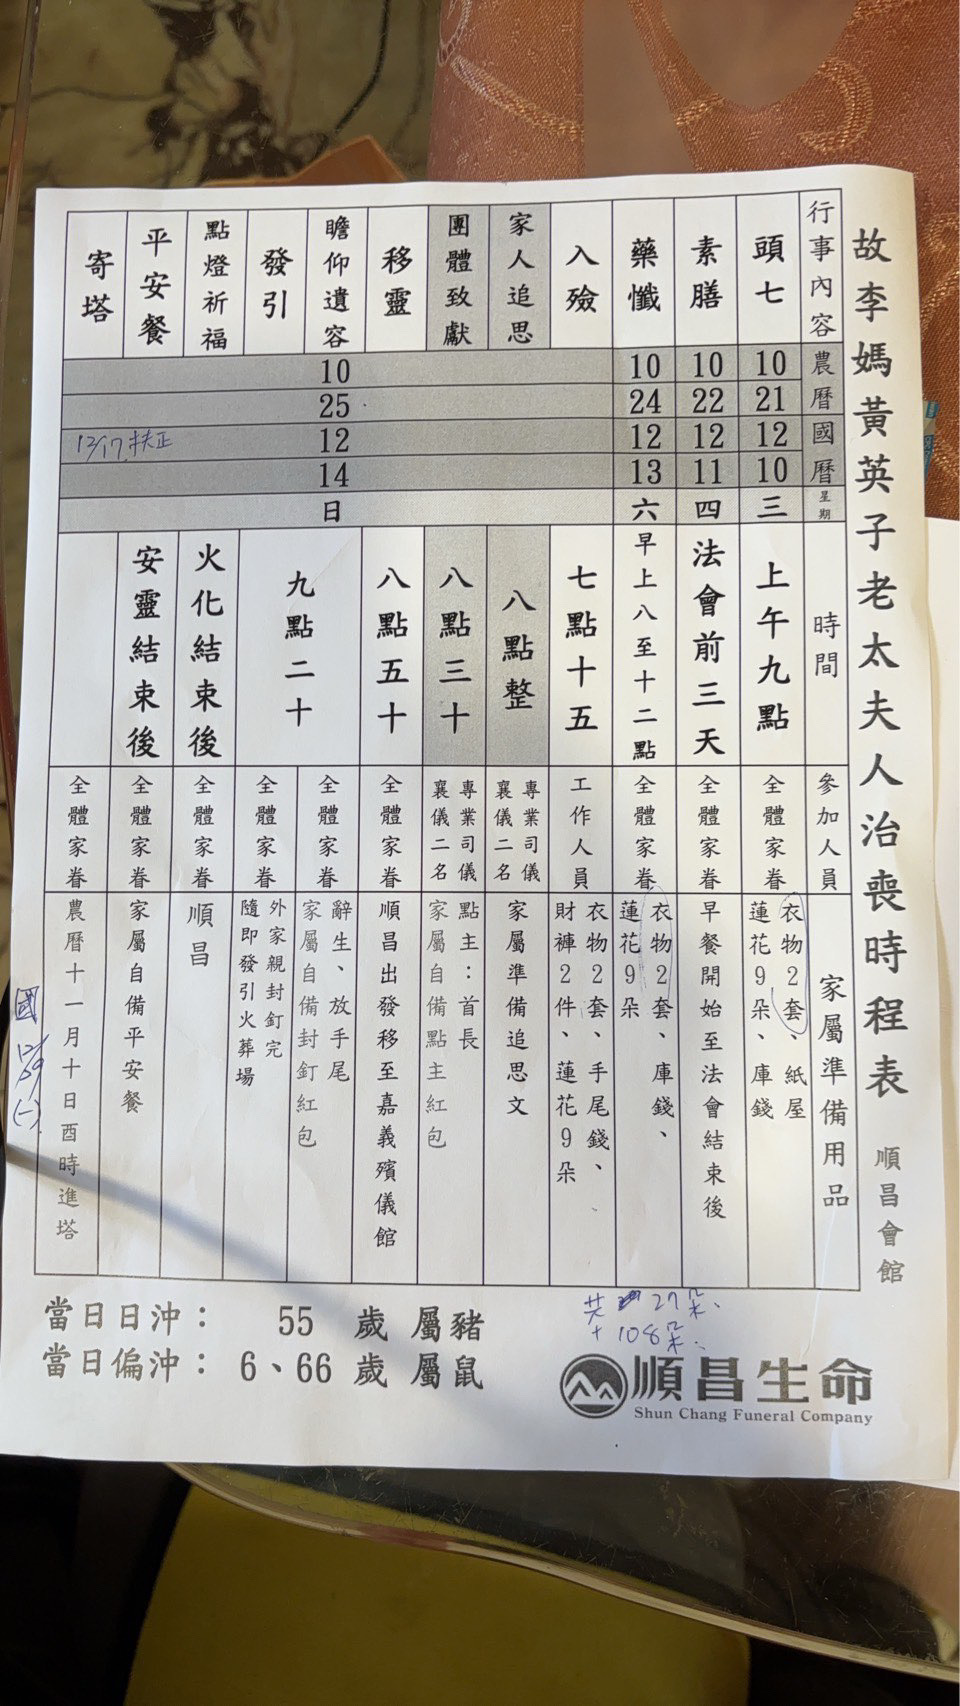 故李媽黃英子老太夫人治喪時程表 順昌會館
行事內容 農曆 國曆 星期 時間 參加人員 家屬準備用品
頭七 10 21 12 10 三 上午九點 全體家眷 衣物2套、紙屋
蓮花9朵、庫錢
素膳 10 22 12 11 四 法會前三天 全體家眷 早餐開始至法會結束後
藥懺 10 24 12 13 六 早上八至十二點 全體家眷 衣物2套、庫錢、
蓮花9朵
入殮 七點十五 工作人員 衣物2套、手尾錢、
財褲2件、蓮花9朵
家人追思 八點整 專業司儀
襄儀二名 家屬準備追思文
團體致獻 八點三十 專業司儀
襄儀二名 點主：首長
家屬自備點主紅包
移靈 八點五十 全體家眷 順昌出發移至嘉義殯儀館
瞻仰遺容 10 25 12 14 日 九點二十 全體家眷 辭生、放手尾
家屬自備封釘紅包
發引 全體家眷 外家親封釘完
隨即發引火葬場
點燈祈福 火化結束後 全體家眷 順昌
平安餐 安靈結束後 全體家眷 家屬自備平安餐
寄塔 12/17 扶正 全體家眷 農曆十一月十日酉時進塔
國 12/29 (一)
共 27朵、
+ 108朵、
當日日沖： 55 歲 屬豬
當日偏沖： 6、66 歲 屬鼠
順昌生命
Shun Chang Funeral Company